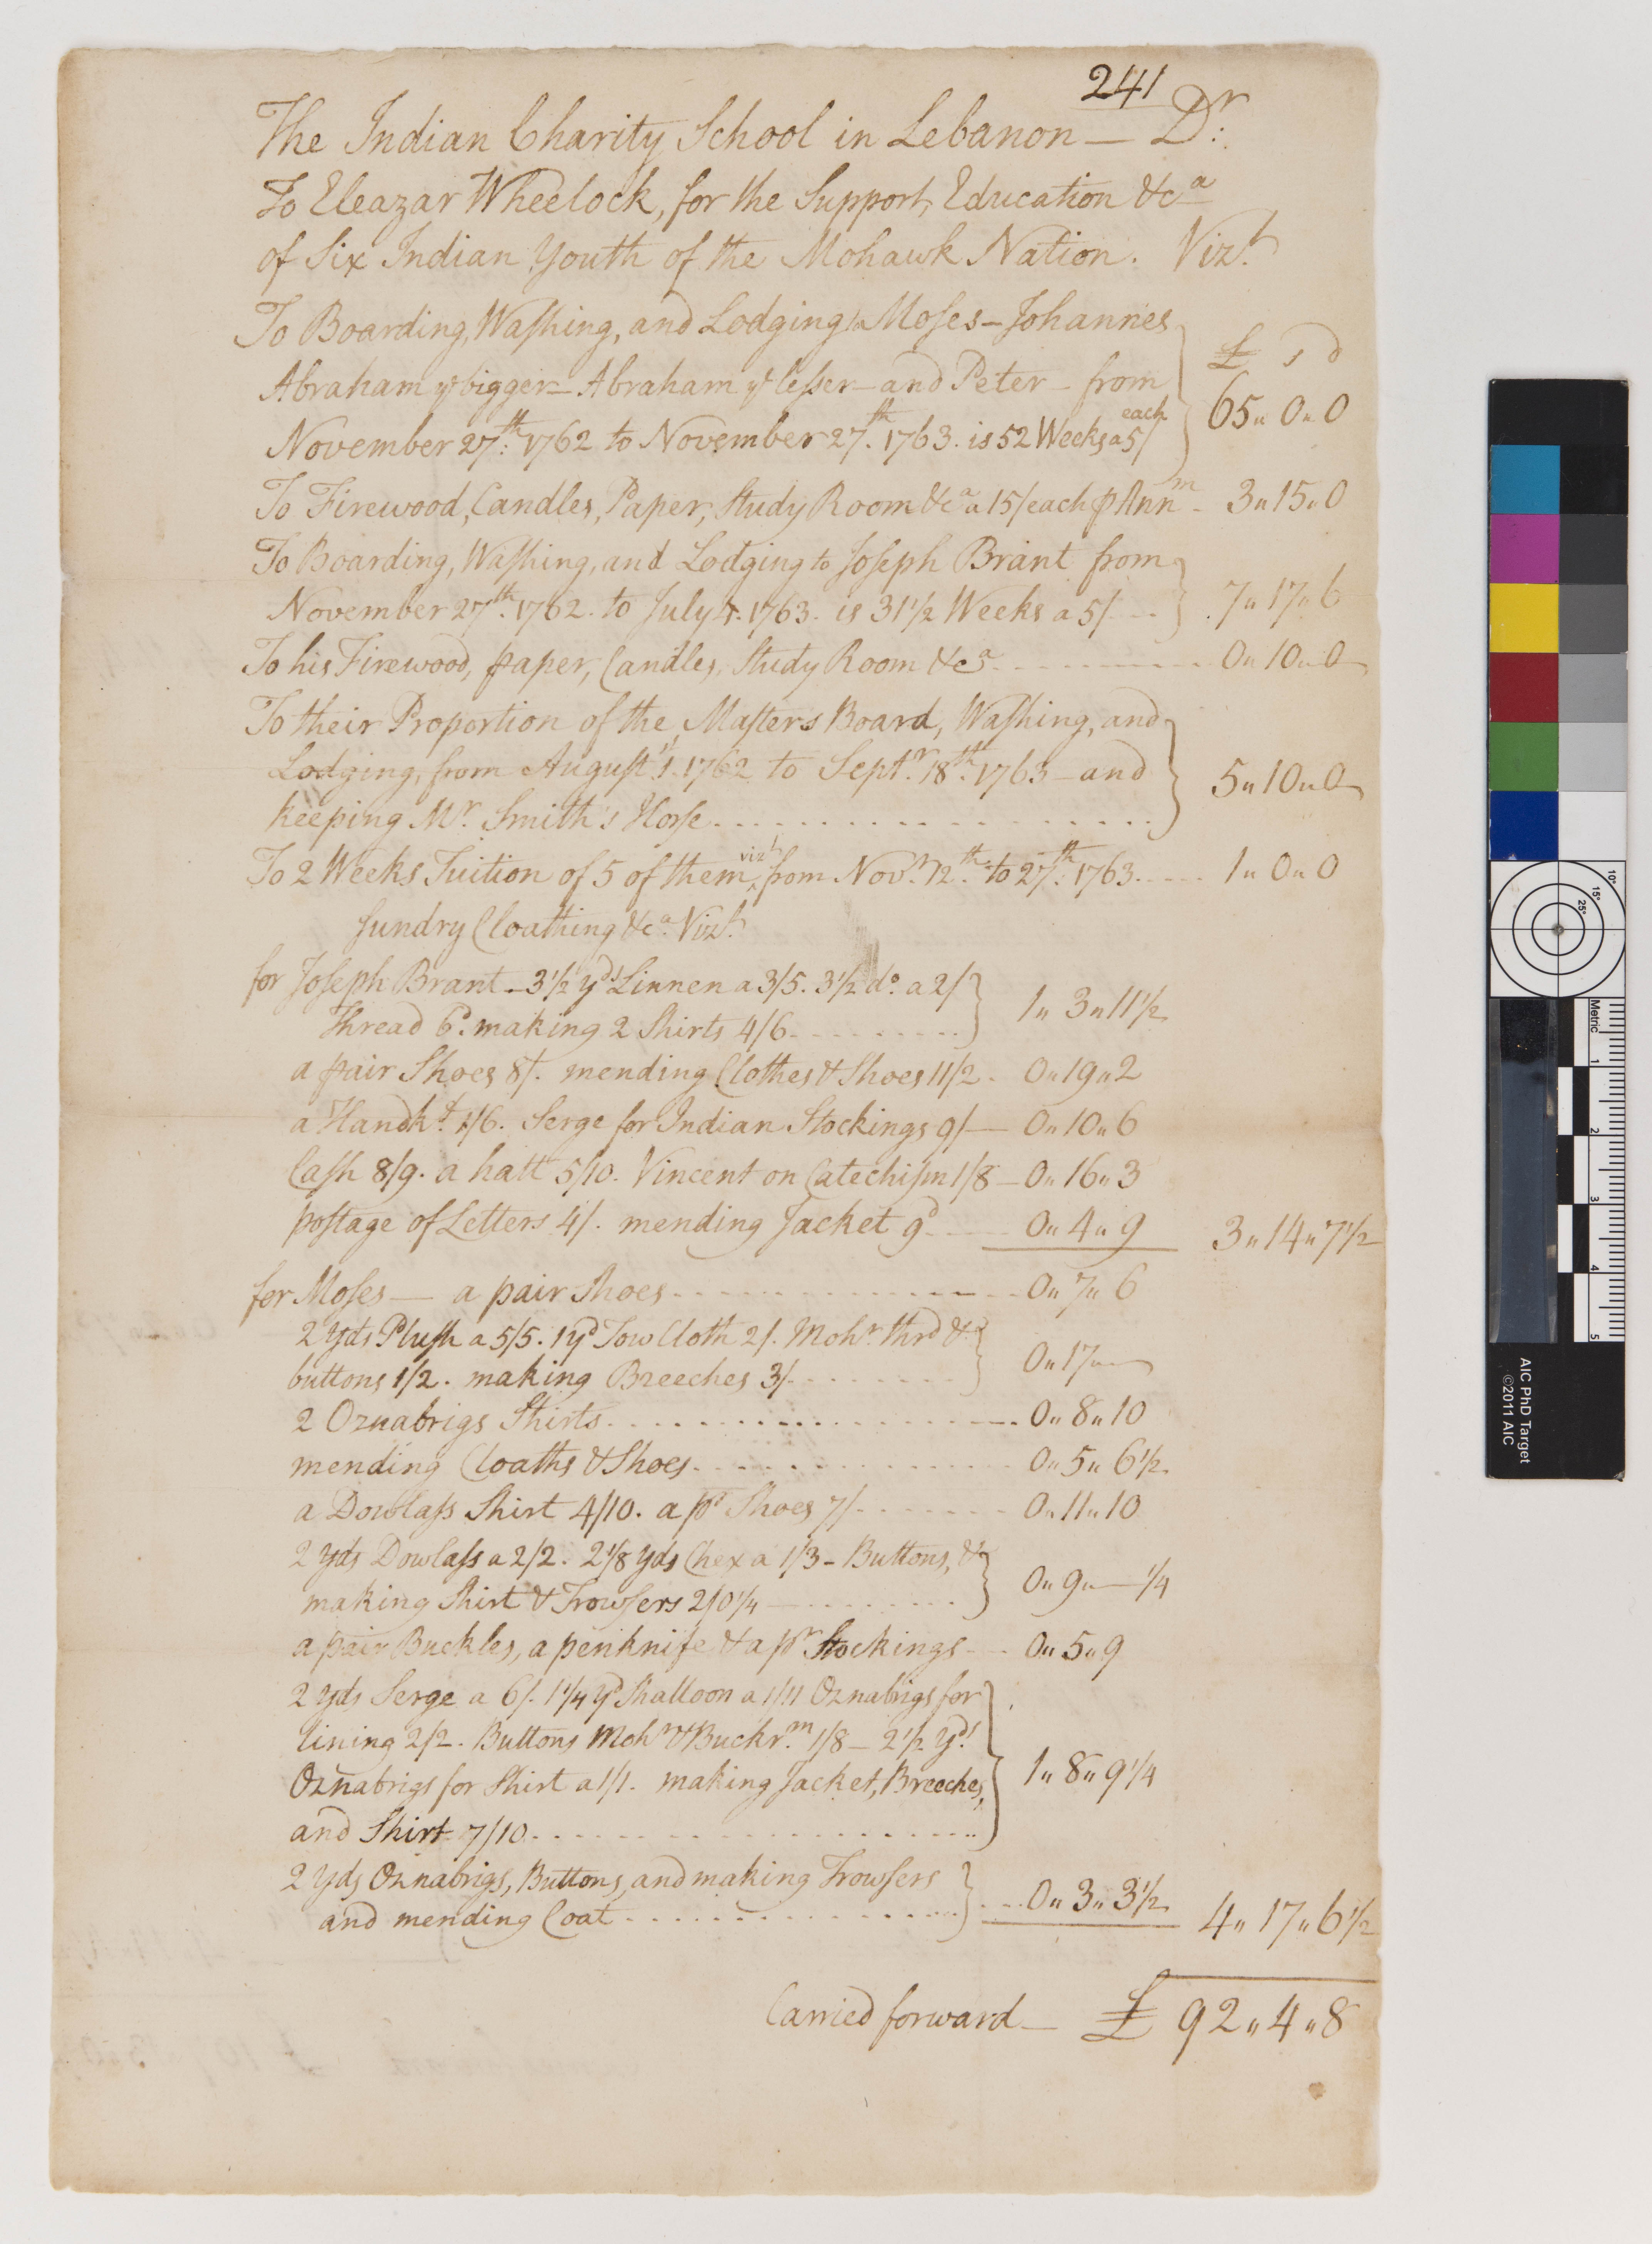 241
The Indian Charity School in Lebanon — Dr:
To Eleazar Wheelock, for the Support, Education &ca
of Six Indian Youth of the Mohawk Nation. Vizt
To Boarding, Waſhing, and Lodging to Moſes – Johannes
Abraham ye bigger – Abraham ye leſser – and Peter – from
November 27th. 1762 to November 27th. 1763. is 52 Weeks a 5/ each
£ s d
65 〃 0 〃 0
To Firewood, Candles, Paper, Study Room &ca a 15/ each ⅌ Annm - 3 〃 15 〃 0
To Boarding, Waſhing, and Lodging to Joſeph Brant from
November 27th. 1762. to July 4. 1763. is 31 1/2 Weeks a 5/ - - 7 〃 17 〃 6
To his Firewood, paper, Candles, Study Room &ca - - - 0 〃 10 〃 0
To their Proportion of the Maſters Board, Waſhing, and
Lodging, from Auguſt 1st. 1762 to Septr. 18th. 1763 – and
keeping Mr. Smith's Horſe - - - 5 〃 10 〃 0
To 2 Weeks Tuition of 5 of them, vizt from Novr. 12th. to 27th. 1763. - - 1 〃 0 〃 0
Sundry Cloathing &ca. Vizt
for Joſeph Brant – 3 1/2 yds Linnen a 3/5. 3 1/2 do. a 2/
Thread 6d. making 2 Shirts 4/6 - - - 1 〃 3 〃 11 1/2
a pair Shoes 8/. mending Clothes & Shoes 11/2 - 0 〃 19 〃 2
a Handkf. 1/6. Serge for Indian Stockings 9/ — 0 〃 10 〃 6
Caſh 8/9. a hatt 5/10. Vincent on Catechiſm 1/8 – 0 〃 16 〃 3
poſtage of Letters 4/. mending Jacket 9d - - 0 〃 4 〃 9 3 〃 14 〃 7 1/2
for Moſes — a pair Shoes - - - 0 〃 7 〃 6
2 Yds Pluſh a 5/5. 1 yd Tow Cloth 2/. Mohr. thrd &
buttons 1/2. making Breeches 3/ - - - 0 〃 17 〃 —
2 Oznabrigs Shirts - - - 0 〃 8 〃 10
mending Cloaths & Shoes - - - 0 〃 5 〃 6 1/2
a Dowlaſs Shirt 4/10. a pr Shoes 7/ - - - 0 〃 11 〃 10
2 yds Dowlaſs a 2/2. 2 1/8 yds Chex a 1/3 – Buttons, &
making Shirt & Trowſers 2/0 1/4 - - - 0 〃 9 〃 — 1/4
a pair Buckles, a penknife & a pr Stockings - - 0 〃 5 〃 9
2 yds Serge a 6/. 1 1/4 yd Shalloon a 1/11 Oznabrigs for
lining 2/2. Buttons Mohr & Buckrm. 1/8 – 2 1/2 yds
Oznabrigs for Shirt a 1/1. making Jacket, Breeches,
and Shirt 7/10 - - - 1 〃 8 〃 9 1/4
2 yds Oznabrigs, Buttons, and making Trowſers
and mending Coat - - - 0 〃 3 〃 3 1/2 4 〃 17 〃 6 1/2
Carried forward — £ 92 〃 4 〃 8
10°
15°
25°
Metric
1
2
3
4
5
AIC PhD Target
©2011 AIC